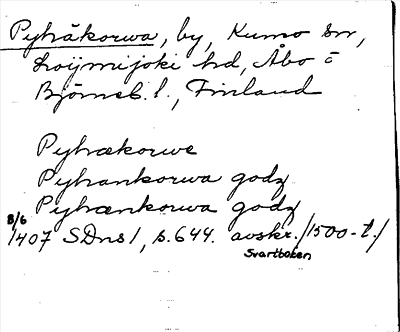 Pyhäkorwa, by, Kumo sn,
Loijmijoki hd, Åbo o
Björneb. l., Finland
Pyhækorwe
Pyhankorwa godz
Pyhænkorwa godz
8/6
1407 SDns 1, s. 644. avskr. /1500-t./
Svartboken